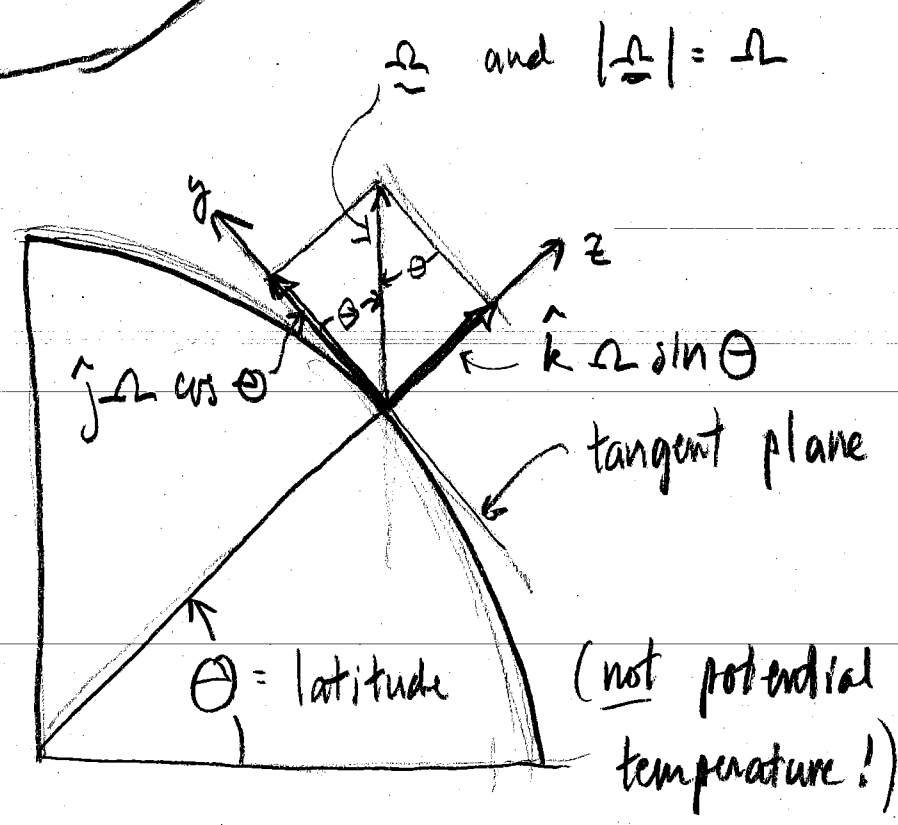 Ω and |Ω| = Ω
y
z
θ
θ
ĵ Ω cos θ
k̂ Ω sin θ
tangent plane
θ = latitude (not potential
temperature!)